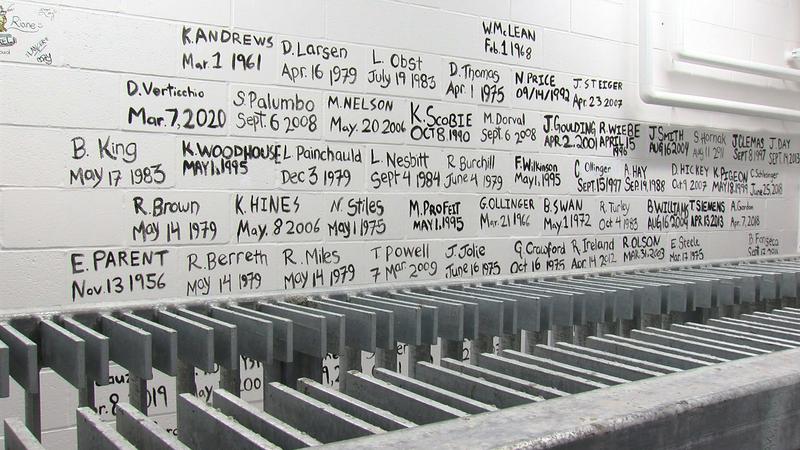 W.McLEAN
Feb. 1 1968
K.ANDREWS
Mar. 1 1961
D.Larsen
Apr. 16 1979
L. Obst
July 19 1983
D.Thomas
Apr. 1 1975
N.PRICE
09/14/1992
J.STEIGER
Apr. 23 2007
D.Verticchio
Mar. 7, 2020
S.Palumbo
Sept. 6 2008
M.NELSON
May. 20 2006
K.SCOBIE
OCT 8, 1990
M.Dorval
Sept. 6 2008
J.GOULDING
APR.2.2001
R.WIEBE
APRIL 15
1996
J.SMITH
AUG16 2004
S Hornak
Aug 11 2011
J.CLEMAS
Sept 8 1997
J.DAY
B. King
May 17 1983
K.WOODHOUSE
MAY 1, 1995
L.Painchauld
Dec 3 1979
L. Nesbitt
Sept 4 1984
R. Burchill
June 4 1979
F.Wilkinson
May 1, 1995
C. Ollinger
Sept. 15, 1997
A. HAY
SEP.19,1988
D.HICKEY
Oct 9, 2007
K.PIGEON
MAY18,1999
June 25, 2018
R.Brown
May 14 1979
K.HINES
May. 8 2006
N. Stiles
May 1 1975
M.PROFEIT
MAY 1, 1995
G.OLLINGER
Mar. 21 1966
B.SWAN
May 1 1972
R. Turley
Oct 4 1983
AUG16 2004
T SIEMENS
APR.15 2013
A.Gordon
Apr. 7, 2018
E.PARENT
Nov. 13 1956
R.Berreth
May 14 1979
R.Miles
May 14 1979
T Powell
7 Mar 2009
J.Jolie
June 16 1975
G Crawford
Oct 16 1975
R Ireland
Apr. 14 2012
R OLSON
MAR.31,2003
E Steele
Mar. 17 1975
B. Fonseca